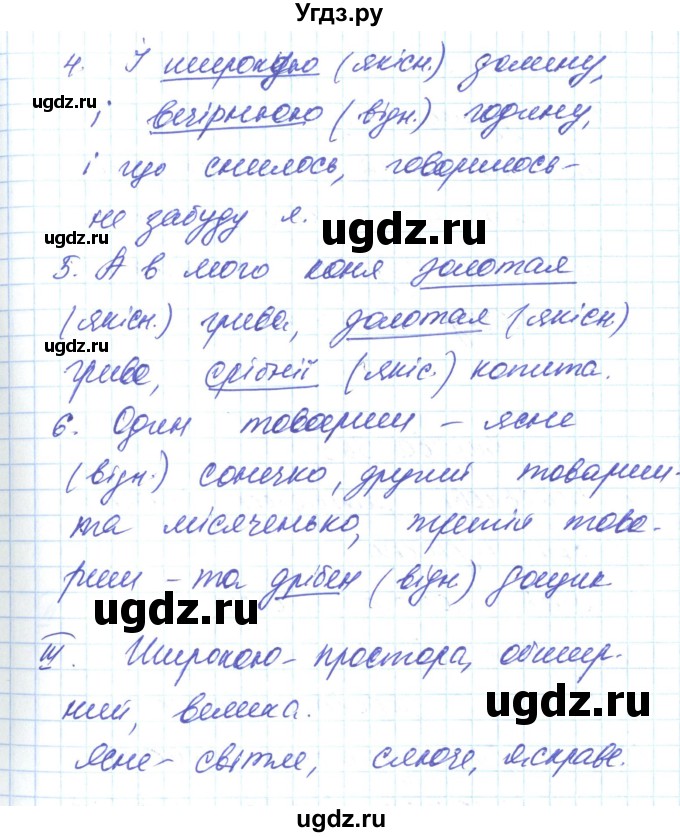 Угдз.ру
4. І широкую (якісн.) долину,
і вечірнюю (відн.) годину,
і що снилось, говорилось -
не забуду я.
5. А в мого коня золотая
(якісн.) грива, золотая (якісн)
грива, срібнії (якіс.) копита.
6. Один товариш - ясне
(відн.) сонечко, другий товариш-
та місяченько, третій това-
риш - та дрібен (відн) дощик
III. Широкою - простора, обшир-
ний, велика.
Ясне - світле, сяюче, яскраве.
ugdz.ru
ugdz.ru
ugdz.ru
ugdz.ru
ugdz.ru
ugdz.ru
ugdz.ru
ugdz.ru
ugdz.ru